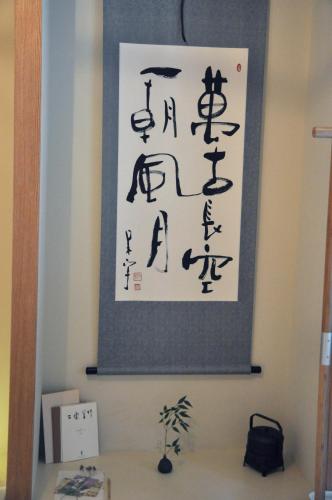 萬古長空
一朝風月